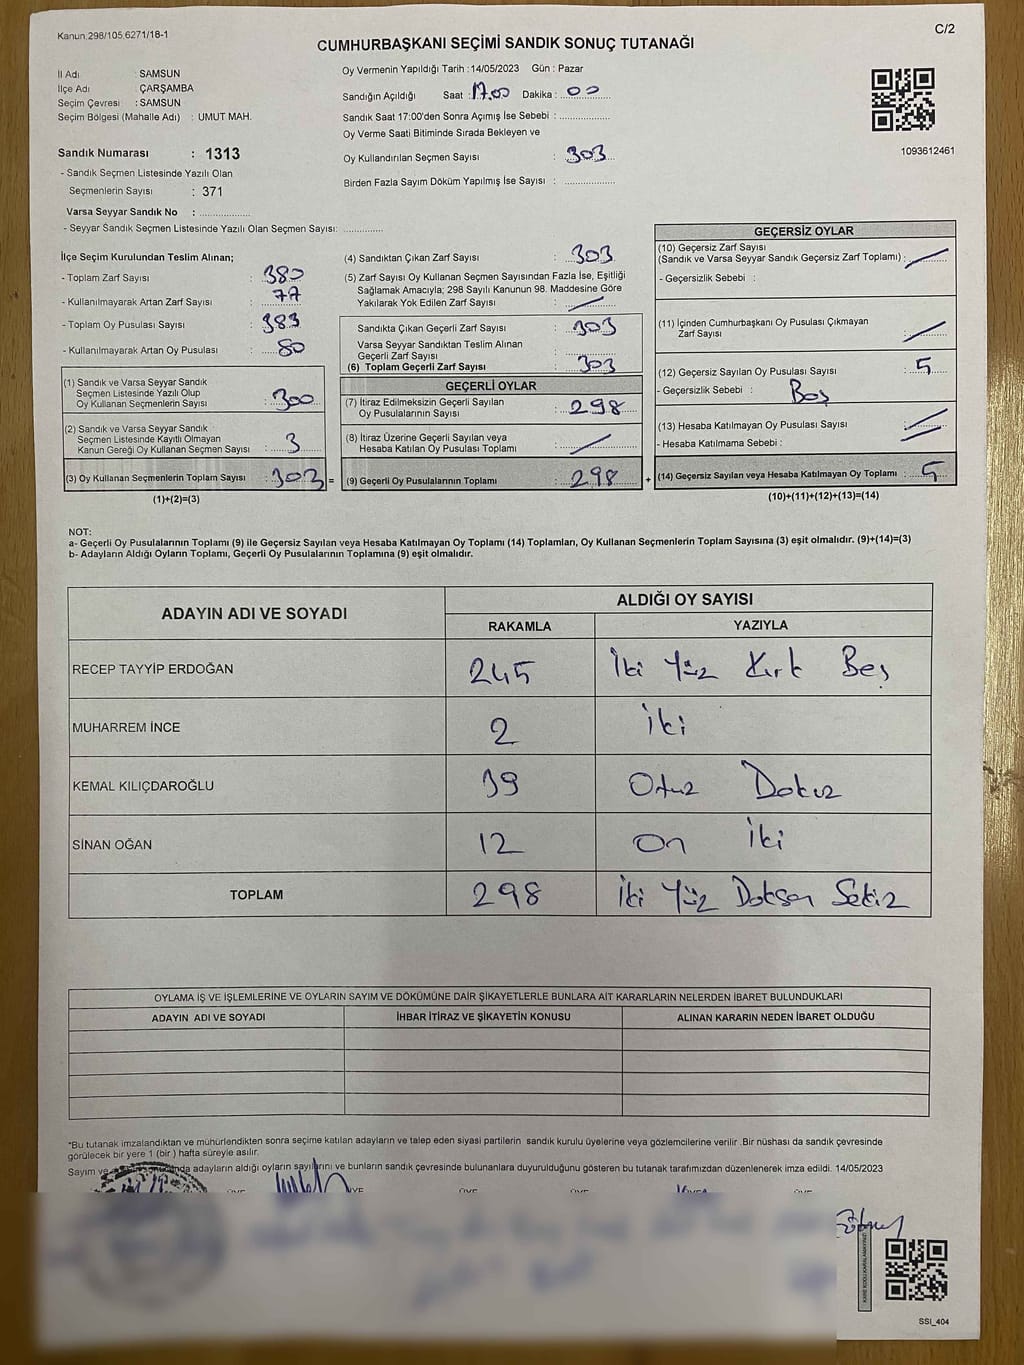 Kanun 298/105,6271/18-1
C/2
CUMHURBAŞKANI SEÇİMİ SANDIK SONUÇ TUTANAĞI
İl Adı : SAMSUN
İlçe Adı : ÇARŞAMBA
Seçim Çevresi : SAMSUN
Seçim Bölgesi (Mahalle Adı) : UMUT MAH.
Sandık Numarası : 1313
- Sandık Seçmen Listesinde Yazılı Olan
Seçmenlerin Sayısı : 371
Varsa Seyyar Sandık No : ...................
- Seyyar Sandık Seçmen Listesinde Yazılı Olan Seçmen Sayısı: ..............
Oy Vermenin Yapıldığı Tarih : 14/05/2023 Gün : Pazar
Sandığın Açıldığı Saat : 17.00 Dakika : 00
Sandık Saat 17:00'den Sonra Açımış İse Sebebi : ..................
Oy Verme Saati Bitiminde Sırada Bekleyen ve
Oy Kullandırılan Seçmen Sayısı : 303
Birden Fazla Sayım Döküm Yapılmış İse Sayısı : ..................
1093612461
İlçe Seçim Kurulundan Teslim Alınan;
- Toplam Zarf Sayısı : 380
- Kullanılmayarak Artan Zarf Sayısı : 77
- Toplam Oy Pusulası Sayısı : 383
- Kullanılmayarak Artan Oy Pusulası : 80
(1) Sandık ve Varsa Seyyar Sandık
Seçmen Listesinde Yazılı Olup
Oy Kullanan Seçmenlerin Sayısı : 300
(2) Sandık ve Varsa Seyyar Sandık
Seçmen Listesinde Kayıtlı Olmayan
Kanun Gereği Oy Kullanan Seçmen Sayısı : 3
(3) Oy Kullanan Seçmenlerin Toplam Sayısı : 303 =
(1)+(2)=(3)
(4) Sandıktan Çıkan Zarf Sayısı : 303
(5) Zarf Sayısı Oy Kullanan Seçmen Sayısından Fazla İse, Eşitliği
Sağlamak Amacıyla; 298 Sayılı Kanunun 98. Maddesine Göre
Yakılarak Yok Edilen Zarf Sayısı : —
Sandıkta Çıkan Geçerli Zarf Sayısı : 303
Varsa Seyyar Sandıktan Teslim Alınan
Geçerli Zarf Sayısı : ..................
(6) Toplam Geçerli Zarf Sayısı : 303
GEÇERLİ OYLAR
(7) İtiraz Edilmeksizin Geçerli Sayılan
Oy Pusulalarının Sayısı : 298
(8) İtiraz Üzerine Geçerli Sayılan veya
Hesaba Katılan Oy Pusulaları Toplamı : —
(9) Geçerli Oy Pusulalarının Toplamı : 298 +
GEÇERSİZ OYLAR
(10) Geçersiz Zarf Sayısı
(Sandık ve Varsa Seyyar Sandık Geçersiz Zarf Toplamı) : —
- Geçersizlik Sebebi :
(11) İçinden Cumhurbaşkanı Oy Pusulası Çıkmayan
Zarf Sayısı : —
(12) Geçersiz Sayılan Oy Pusulası Sayısı : 5
- Geçersizlik Sebebi : Boş
(13) Hesaba Katılmayan Oy Pusulası Sayısı : —
- Hesaba Katılmama Sebebi : —
(14) Geçersiz Sayılan veya Hesaba Katılmayan Oy Toplamı : 5
(10)+(11)+(12)+(13)=(14)
NOT:
a- Geçerli Oy Pusulalarının Toplamı (9) ile Geçersiz Sayılan veya Hesaba Katılmayan Oy Toplamı (14) Toplamları, Oy Kullanan Seçmenlerin Toplam Sayısına (3) eşit olmalıdır. (9)+(14)=(3)
b- Adayların Aldığı Oyların Toplamı, Geçerli Oy Pusulalarının Toplamına (9) eşit olmalıdır.
ADAYIN ADI VE SOYADI
ALDIĞI OY SAYISI
RAKAMLA YAZIYLA
RECEP TAYYİP ERDOĞAN 245 İki Yüz Kırk Beş
MUHARREM İNCE 2 İki
KEMAL KILIÇDAROĞLU 39 Otuz Dokuz
SİNAN OĞAN 12 On İki
TOPLAM 298 İki Yüz Doksan Sekiz
OYLAMA İŞ VE İŞLEMLERİNE VE OYLARIN SAYIM VE DÖKÜMÜNE DAİR ŞİKAYETLERLE BUNLARA AİT KARARLARIN NELERDEN İBARET BULUNDUKLARI
ADAYIN ADI VE SOYADI İHBAR İTİRAZ VE ŞİKAYETİN KONUSU ALINAN KARARIN NEDEN İBARET OLDUĞU
*Bu tutanak imzalandıktan ve mühürlendikten sonra seçime katılan adayların ve talep eden siyasi partilerin sandık kurulu üyelerine veya gözlemcilerine verilir .Bir nüshası da sandık çevresinde
görülecek bir yere 1 (bir ) hafta süreyle asılır.
Sayım ve adayların aldığı oyların sayılarını ve bunların sandık çevresinde bulunanlara duyurulduğunu gösteren bu tutanak tarafımızdan düzenlenerek imza edildi. 14/05/2023
KARE KODU KARALAMAYINIZ!
SSI_404